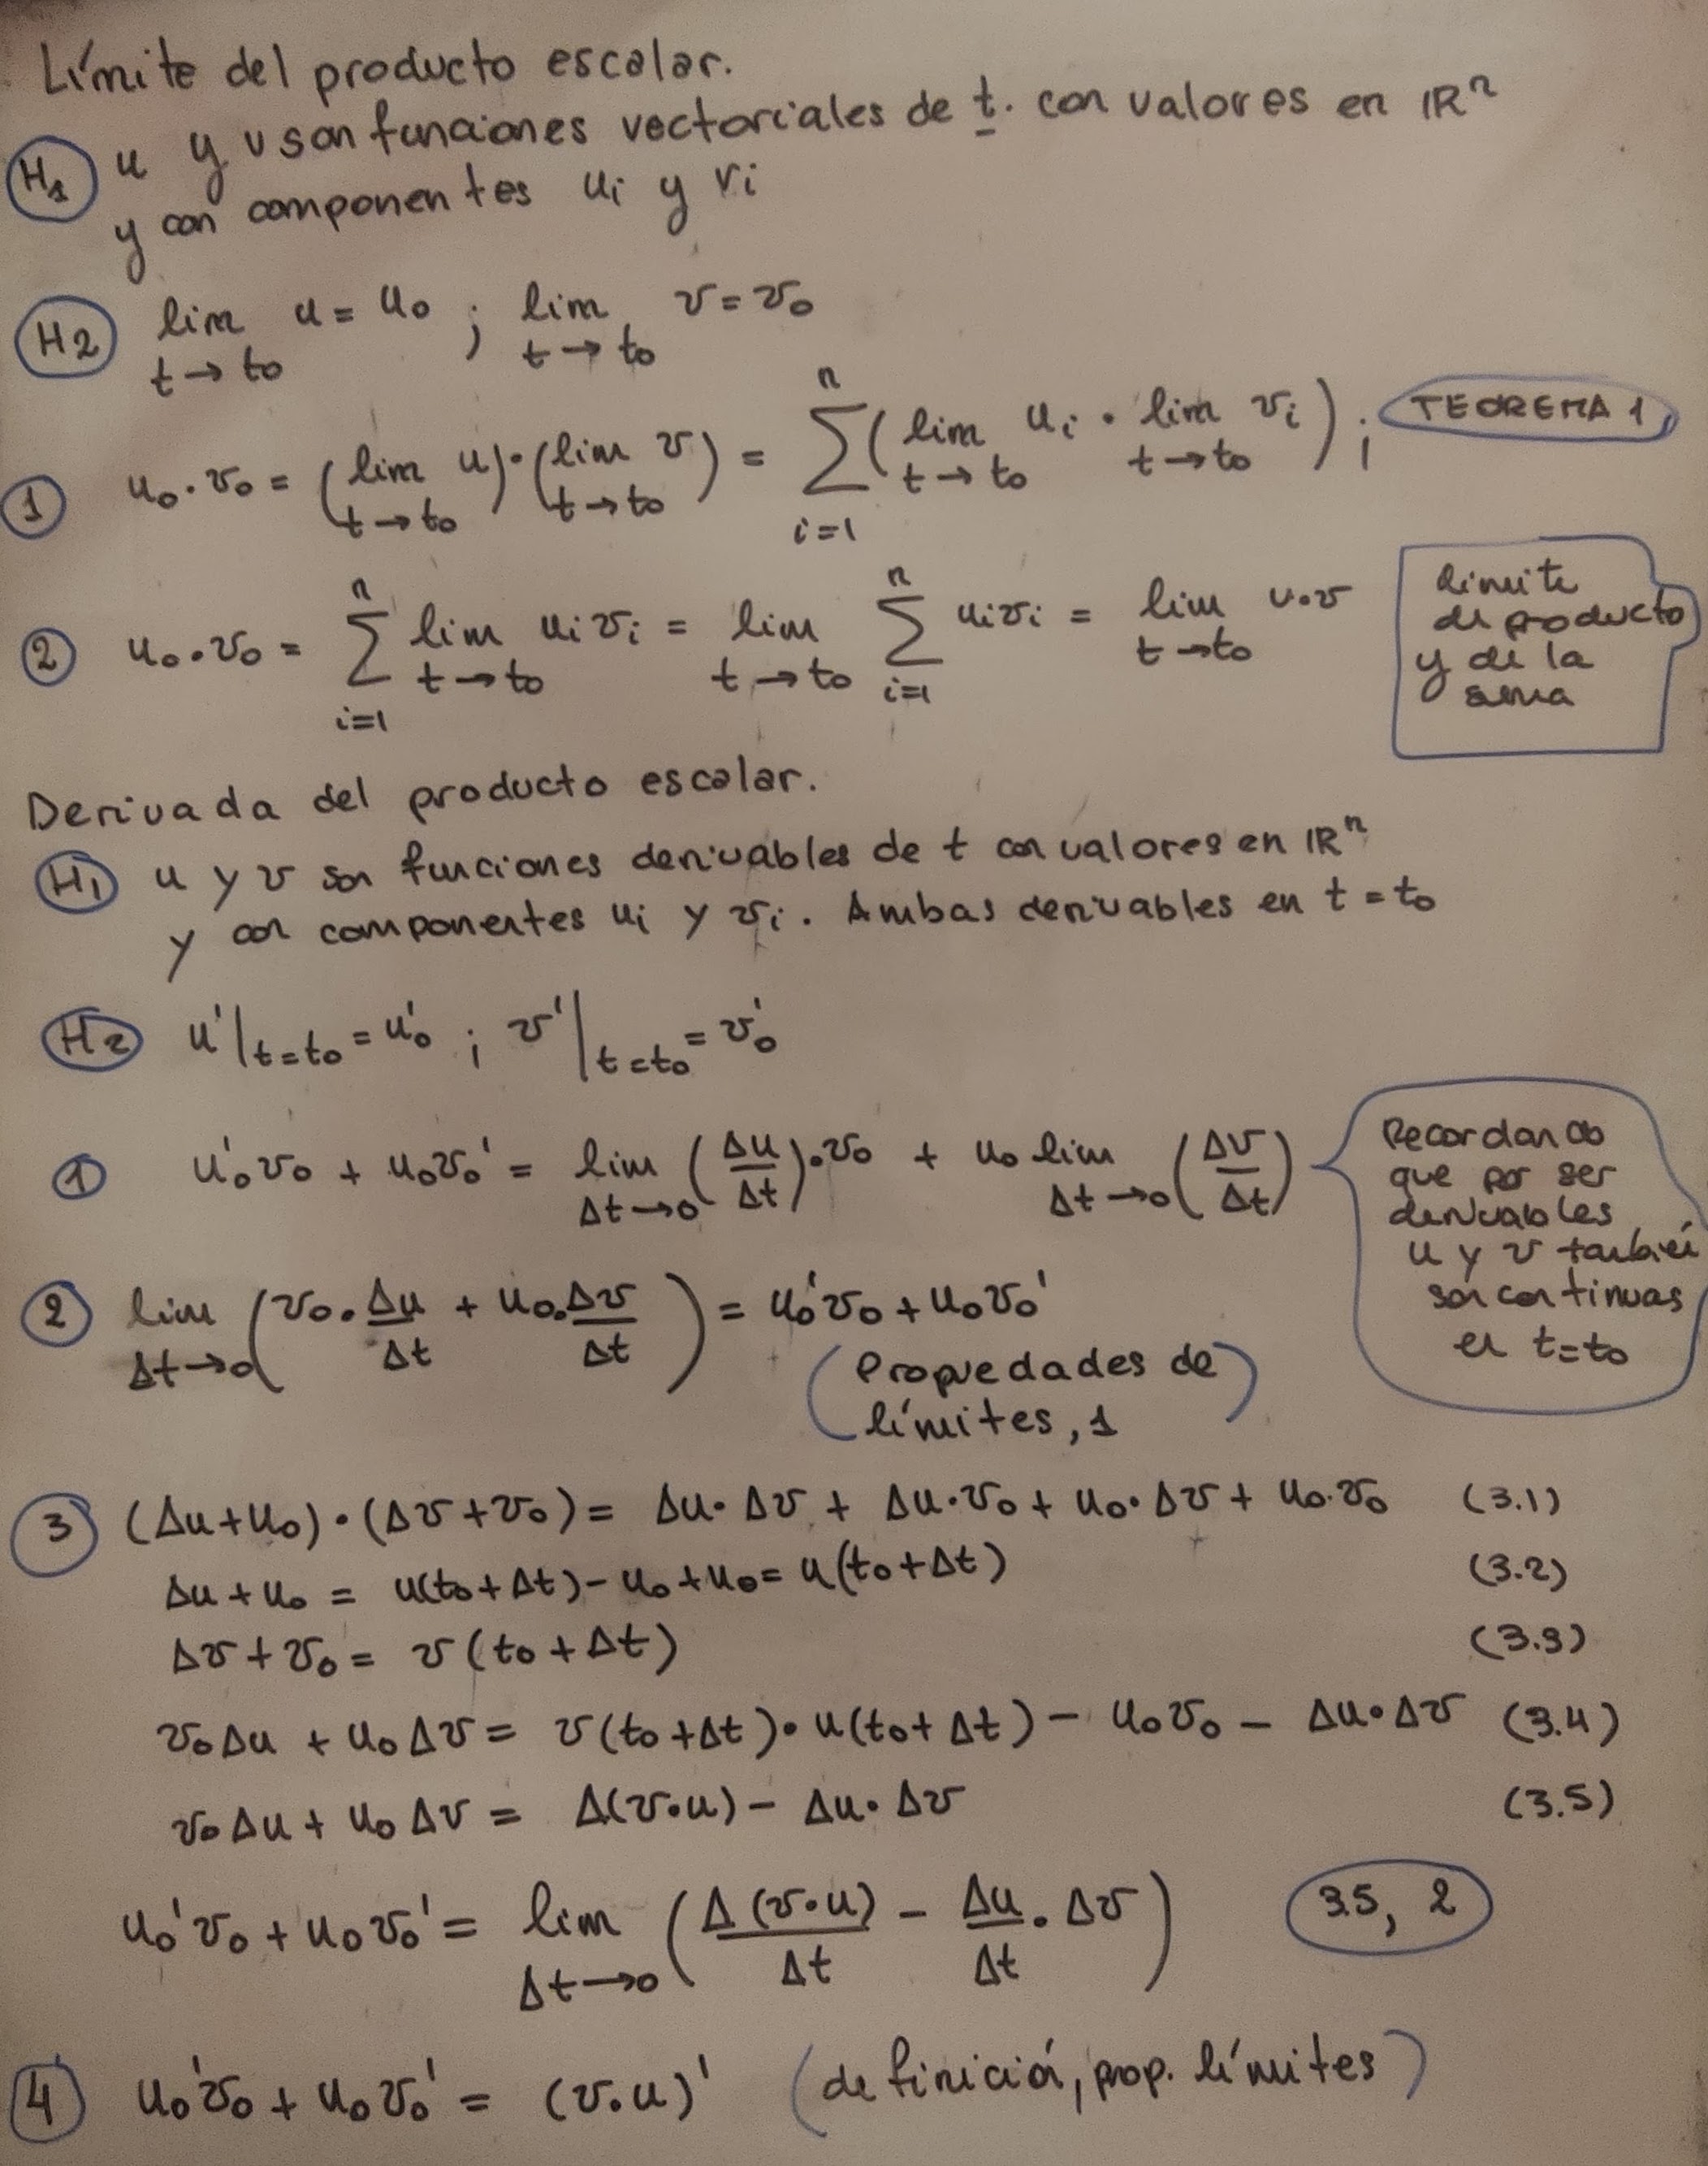 Límite del producto escalar.
H1 u y v son funciones vectoriales de t. con valores en IRⁿ
y con componentes ui y vi
H2 lim t→t0 u = u0 ; lim t→t0 v = v0
1 u0·v0 = (lim t→t0 u)·(lim t→t0 v) = Σ i=1 n (lim t→t0 ui · lim t→t0 vi) ; TEOREMA 1,
2 u0·v0 = Σ i=1 n lim t→t0 ui vi = lim t→t0 Σ i=1 n ui vi = lim t→t0 u·v
límite
de producto
y de la
suma
Derivada del producto escalar.
H1 u y v son funciones derivables de t con valores en IRⁿ
y con componentes ui y vi. Ambas derivables en t = t0
H2 u'|t=t0 = u'0 ; v'|t=t0 = v'0
1 u'0v0 + u0v0' = lim Δt→0 (Δu/Δt)·v0 + u0 lim Δt→0 (Δv/Δt)
Recordando
que por ser
derivables
u y v también
son continuas
en t=t0
2 lim Δt→0 (v0·Δu/Δt + u0·Δv/Δt) = u0'v0 + u0v0'
(Propiedades de
límites, 1)
3 (Δu+u0)·(Δv+v0) = Δu·Δv + Δu·v0 + u0·Δv + u0·v0 (3.1)
Δu + u0 = u(t0+Δt) - u0 + u0 = u(t0+Δt) (3.2)
Δv + v0 = v(t0+Δt) (3.3)
v0Δu + u0Δv = v(t0+Δt)·u(t0+Δt) - u0v0 - Δu·Δv (3.4)
v0Δu + u0Δv = Δ(v·u) - Δu·Δv (3.5)
u0'v0 + u0v0' = lim Δt→0 (Δ(v·u)/Δt - Δu/Δt·Δv) 3.5, 2
4 u0'v0 + u0v0' = (v.u)' (definición, prop. límites)